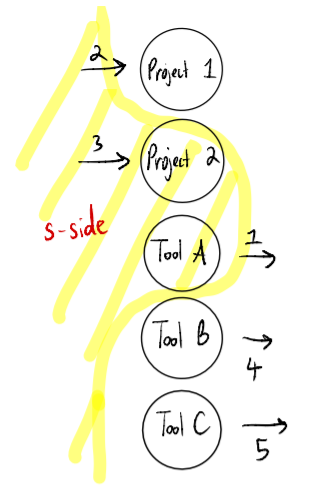 2
Project 1
3
Project 2
s-side
Tool A
1
Tool B
4
Tool C
5